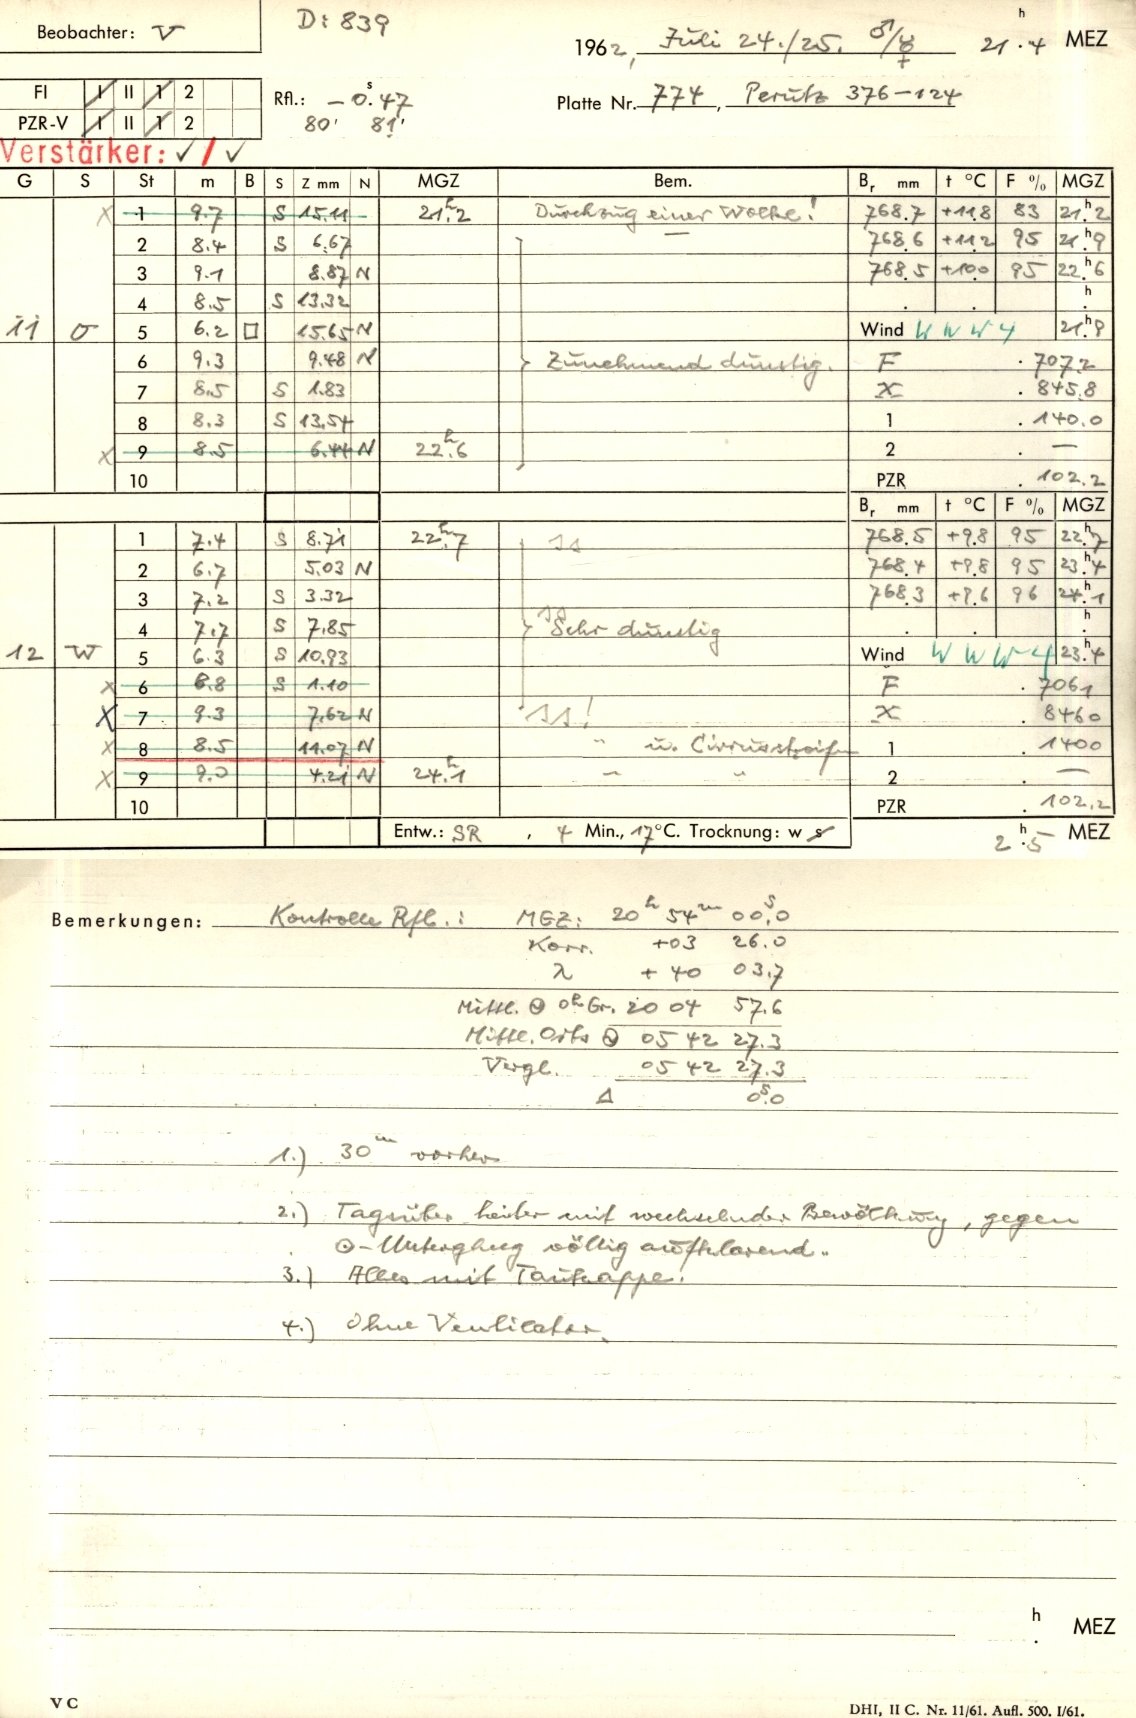 Beobachter: V
D: 839
1962, Juli 24./25. ♂/☿ 21h.4 MEZ
FI I II 1 2
PZR-V I II 1 2
Rfl.: -0s.47
80' 81'
Platte Nr. 774, Perutz 376-124
Verstärker: ✓/✓
G S St m B S Z mm N MGZ Bem. Br mm t °C F % MGZ
x 1 9.7 S 15.11 21h.2 Durchzug einer Wolke! 768.7 +11.8 83 21h.2
2 8.4 S 6.67 768.6 +11.2 95 21h.9
3 9.1 8.87 N 768.5 +10.0 95 22h.6
4 8.5 S 13.32 h
11 O 5 6.2 □ 15.65 N Wind WNW 4 21h.9
6 9.3 9.48 N Zunehmend dunstig. F 707.2
7 8.5 S 1.83 X 845.8
8 8.3 S 13.54 1 140.0
x 9 8.5 6.44 N 22h.6 2 —
10 PZR 102.2
Br mm t °C F % MGZ
1 7.4 S 8.71 22h.7 768.5 +9.8 95 22h.7
2 6.7 5.03 N 768.4 +9.8 95 23h.4
3 7.2 S 3.32 768.3 +9.6 96 24h.1
4 7.7 S 7.85 Sehr dunstig h
12 W 5 6.3 S 10.93 Wind WNW 4 23h.4
x 6 8.8 S 1.10 F 7061
x 7 9.3 7.62 N X 8460
x 8 8.5 11.07 N " u. Cirrusstreifen 1 1400
x 9 9.0 4.21 N 24h.1 " " 2 —
10 PZR 102.2
Entw.: SR, 4 Min., 17°C. Trocknung: w s
2h.5 MEZ
Bemerkungen: Kontrolle Rfl.: MGZ: 20h 54m 00s.0
Korr. +03 26.0
λ +40 03.7
Mittl. ☉ 0h Gr. 20 04 57.6
Mittl. Orts ☉ 05 42 27.3
Vergl. 05 42 27.3
Δ 0s.0
1.) 30m vorher
2.) Tagsüber heiter mit wechselnder Bewölkung, gegen
☉-Untergang völlig aufklarend.
3.) Alles mit Taukappe.
4.) Ohne Ventilator.
h
. MEZ
V C
DHI, II C. Nr. 11/61. Aufl. 500. I/61.